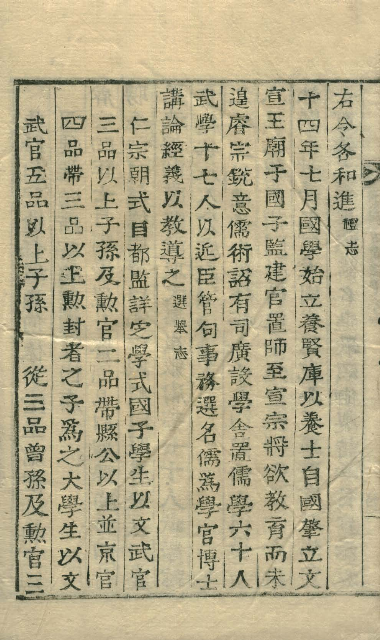 右令各和進禮志
十四年七月國學始立養賢庫以養士自國肇立文
宣王廟于國子監建官置師至宣宗將欲教育而未
遑睿宗銳意儒術詔有司廣設學舍置儒學六十人
武學十七人以近臣管句事務選名儒爲學官博士
講論經義以教導之選擧志
仁宗朝式目都監詳定學式國子學生以文武官
三品以上子孫及勳官二品帶縣公以上並京官
四品帶三品以上勳封者之子爲之大學生以文
武官五品以上子孫 從三品曾孫及勳官三